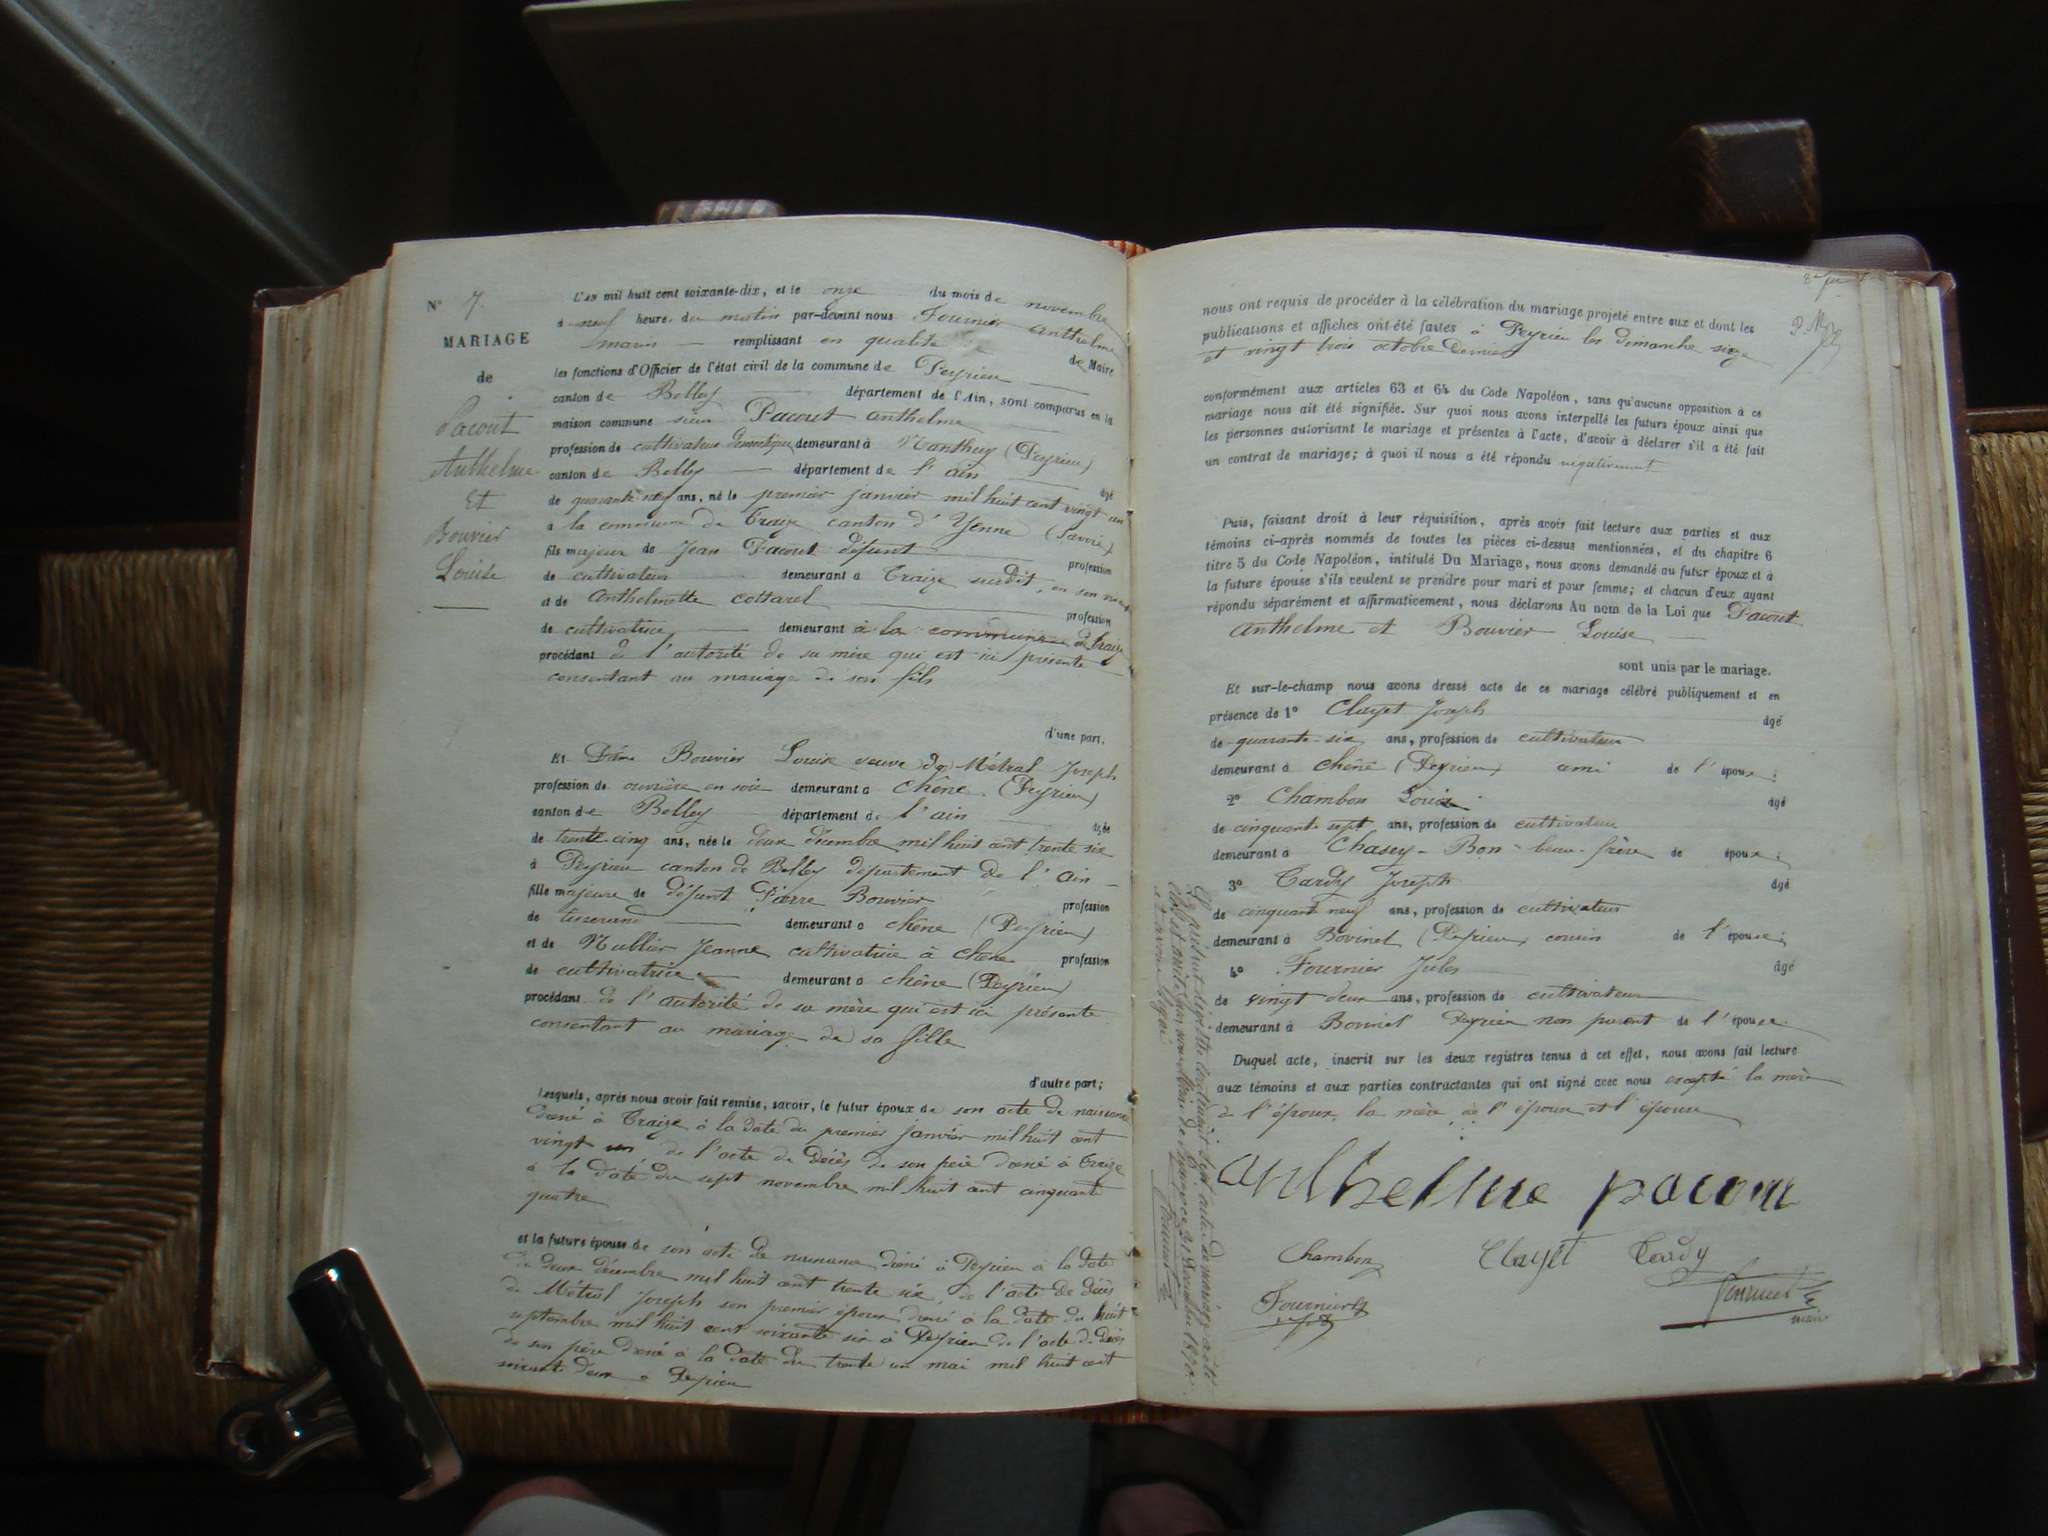 N° 7.
MARIAGE
de
Pacout
Anthelme
Et
Bouvier
Louise
L'AN mil huit cent soixante-dix, et le onze du mois de novembre
à neuf heure du matin par-devant nous Fournier Anthelme
maire remplissant en qualité de Maire
les fonctions d'Officier de l'état civil de la commune de Peyrieu
canton de Belley département de l'Ain, sont comparus en la
maison commune sieur Pacout Anthelme
profession de cultivateur domestique demeurant à Nanthuy (Peyrieu)
canton de Belley département de l'ain âgé
de quarante neuf ans, né le premier janvier mil huit cent vingt un
à la commune de Traize canton d'Yenne (Savoie)
fils majeur de Jean Pacout défunt profession
de cultivateur demeurant à Traize susdit, en son vivant
et de Anthelmette Cottarel profession
de cultivatrice demeurant à la commune de Traize
procédant de l'autorité de sa mère qui est ici présente
consentant au mariage de son fils
d'une part;
Et Dame Bouvier Louise veuve de Métral Joseph
profession de ouvrière en soie demeurant à Chêne (Peyrieu)
canton de Belley département de l'ain âgée
de trente cinq ans, née le deux décembre mil huit cent trente six
à Peyrieu canton de Belley département de l'Ain
fille majeure de défunt Pierre Bouvier profession
de tisserand demeurant à chêne (Peyrieu)
et de Nullier Jeanne cultivatrice à chêne profession
de cultivatrice demeurant à chêne (Peyrieu)
procédant de l'autorité de sa mère qui est ici présente
consentant au mariage de sa fille
d'autre part;
Lesquels, après nous avoir fait remise, savoir, le futur époux de son acte de naissance
doné à Traize à la date du premier Janvier mil huit cent
vingt un de l'acte de décès de son père doné à Traize
à la date du sept novembre mil huit cent cinquante
quatre
et la future épouse de son acte de naissance doné à Peyrieu à la date
du deux décembre mil huit cent trente six de l'acte de décès
de Métral Joseph son premier époux doné à la date du huit
septembre mil huit cent soixante six à Peyrieu de l'acte de décès
de son père doné à la date du trente un mai mil huit cent
soixante deux à Peyrieu
nous ont requis de procéder à la célébration du mariage projeté entre eux et dont les
publications et affiches ont été faites à Peyrieu les dimanche seize
et vingt trois octobre dernier
conformément aux articles 63 et 64 du Code Napoléon, sans qu'aucune opposition à ce
mariage nous ait été signifiée. Sur quoi nous avons interpellé les futurs époux ainsi que
les personnes autorisant le mariage et présentes à l'acte, d'avoir à déclarer s'il a été fait
un contrat de mariage; à quoi il nous a été répondu négativement
Puis, faisant droit à leur réquisition, après avoir fait lecture aux parties et aux
témoins ci-après nommés de toutes les pièces ci-dessus mentionnées, et du chapitre 6
titre 5 du Code Napoléon, intitulé Du Mariage, nous avons demandé au futur époux et à
la future épouse s'ils veulent se prendre pour mari et pour femme; et chacun d'eux ayant
répondu séparément et affirmativement, nous déclarons Au nom de la Loi que Pacout
Anthelme et Bouvier Louise
sont unis par le mariage.
Et sur-le-champ nous avons dressé acte de ce mariage célébré publiquement et en
présence de 1° Clayet Joseph âgé
de quarante-six ans, profession de cultivateur
demeurant à chêne (Peyrieu) ami de l'époux;
2° Chambon Louis âgé
de cinquante sept ans, profession de cultivateur
demeurant à Chasey-Bon beau-frère de époux;
3° Tardy Joseph âgé
de cinquante neuf ans, profession de cultivateur
demeurant à Bovinel (Peyrieu) cousin de l'épouse;
4° Fournier Jules âgé
de vingt deux ans, profession de cultivateur
demeurant à Bovinel Peyrieu non parent de l'épouse.
Duquel acte, inscrit sur les deux registres tenus à cet effet, nous avons fait lecture
aux témoins et aux parties contractantes qui ont signé avec nous excepté la mère
de l'époux, la mère de l'épouse et l'épouse
anthelme pacout
Chambon Clayet Tardy
Fournier Fournier
maire
Le présent registre contenant sept actes de mariage a été
clos et arrêté par nous Maire de 31 Décembre 1870.